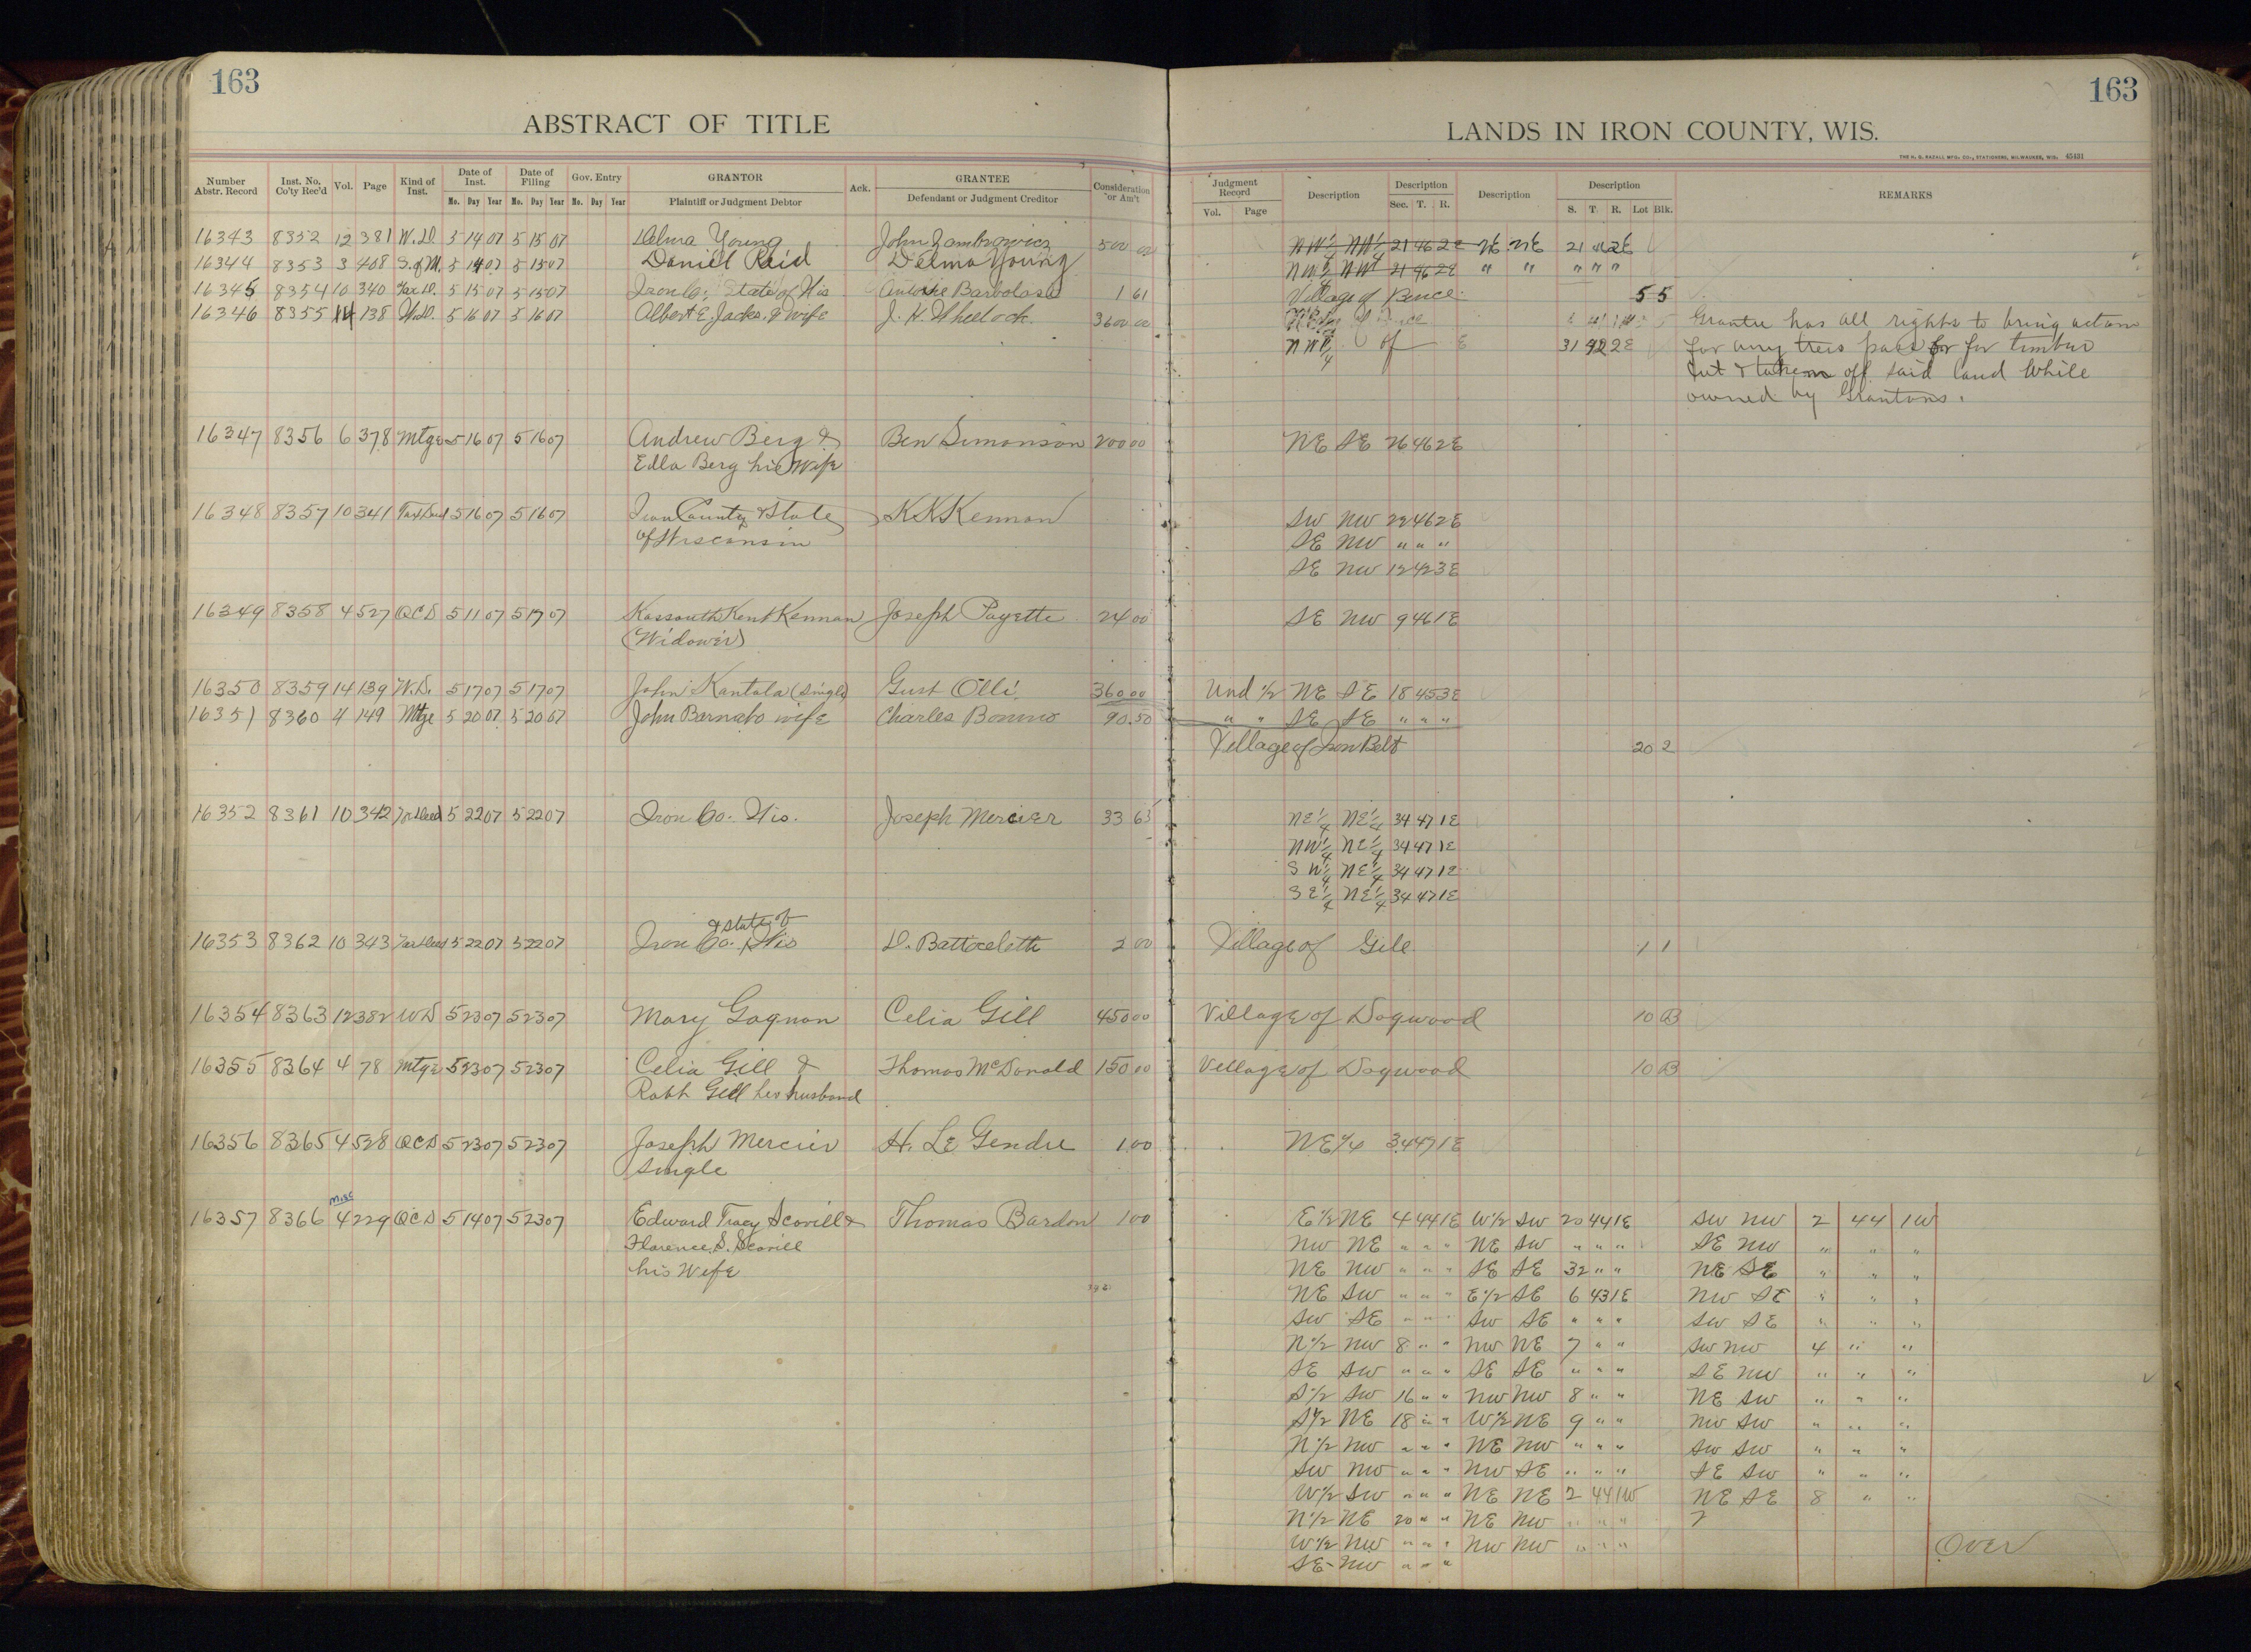 163
ABSTRACT OF TITLE
Number Abstr. Record | Inst. No. Co'ty Rec'd | Vol. | Page | Kind of Inst. | Date of Inst. Mo. Day Year | Date of Filing Mo. Day Year | Gov. Entry Mo. Day Year | GRANTOR Plaintiff or Judgment Debtor | Ack. | GRANTEE Defendant or Judgment Creditor | Consideration or Am't
163
LANDS IN IRON COUNTY, WIS.
THE H. G. RAZALL MFG. CO., STATIONERS, MILWAUKEE, WIS. 45431
Judgment Record Vol. Page | Description | Description Sec. T. R. | Description | Description S. T. R. Lot Blk. | REMARKS
16343 8352 12 381 W.D. 5 14 07 5 15 07 Delma Young John Zambrowicz 500 00 NW 1/4 NW 1/4 21 46 2E NE NE 21 46 2E
16344 8353 3 408 S. of M. 5 14 07 5 15 07 Daniel Reid Delma Young NW 1/4 NW 1/4 21 46 2E " " " " "
16345 8354 10 340 Tax D. 5 15 07 5 15 07 Iron Co., State of Wis Antoine Barbolas 1 61 Village of Pence 5 5
16346 8355 14 138 W.D. 5 16 07 5 16 07 Albert E. Jacks. & wife J. H. Wheelock 3600 00 Grantee has all rights to bring actions
31 42 2E for any trees pass for for timber
cut & taken off said land while
owned by Grantors.
16347 8356 6 378 Mtge 5 16 07 5 16 07 Andrew Berg & Ben Simonson 200 00 NE SE 26 46 2E
Edla Berg his Wife
16348 8357 10 341 Tax Deed 5 16 07 5 16 07 Iron County & State K K Kennan SW NW 22 46 2E
of Wisconsin SE NW " " "
SE NW 12 42 3E
16349 8358 4 527 QCD 5 11 07 5 17 07 Kossouth Kent Kennan Joseph Payette 24 00 SE NW 9 46 1E
(Widower)
16350 8359 14 139 W.D. 5 17 07 5 17 07 John Kantola (single) Gust Olli 360 00 Und 1/2 NE SE 18 45 3E
16351 8360 4 149 Mtge 5 20 07 5 20 07 John Barnabo wife Charles Bonino 90.50 " " SE SE " " "
Village of Iron Belt 20 2
16352 8361 10 342 Tax Deed 5 22 07 5 22 07 Iron Co. Wis. Joseph Mercier 33 63 NE 1/4 NE 1/4 34 47 1E
NW 1/4 NE 1/4 34 47 1E
SW 1/4 NE 1/4 34 47 1E
SE 1/4 NE 1/4 34 47 1E
& State of
16353 8362 10 343 Tax Deed 5 22 07 5 22 07 Iron Co. Wis D. Battoceletti 2 00 Village of Gile 1 1
16354 8363 12 382 WD 5 23 07 5 23 07 Mary Gagnon Celia Gill 450 00 Village of Dogwood 10 B
16355 8364 4 78 Mtge 5 23 07 5 23 07 Celia Gill & Thomas McDonald 150 00 Village of Dogwood 10 B
Robt Gill her husband
16356 8365 4 528 QCD 5 23 07 5 23 07 Joseph Mercier H. Le Gendre 1 00 NE 1/4 34 47 1E
Single
misc
16357 8366 4 229 QCD 5 14 07 5 23 07 Edward Tracy Scovill & Thomas Bardon 1 00 E 1/2 NE 4 44 1E W 1/2 SW 20 44 1E SW NW 2 44 1W
Florence S. Scovill NW NE " " " NE SW " " " SE NW " " "
his Wife NE NW " " " SE SE 32 " " NE SE " " "
NE SW " " " E 1/2 SE 6 43 1E NW SE " " "
SW SE " " " SW SE " " " SW SE " " "
N 1/2 NW 8 " " NW NE 7 " " SW NW 4 " "
SE SW " " " SE SE " " " SE NW " " "
S 1/2 SW 16 " " NW NW 8 " " NE SW " " "
S 1/2 NE 18 " " W 1/2 NE 9 " " NW SW " " "
N 1/2 NW " " " NE NW " " " SW SW " " "
SW NW " " " NW SE " " " SE SW " " "
W 1/2 SW " " " NE NE 2 44 1W NE SE 8 " "
N 1/2 NE 20 " " NE NW " " "
W 1/2 NW " " " NW NW " " " Over
SE NW " " "